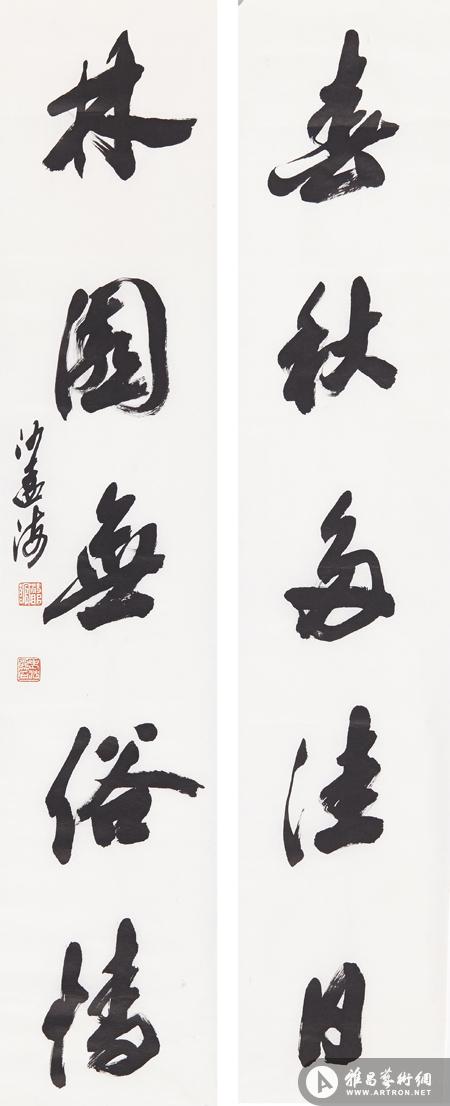 春秋多佳日
林園無俗情
沙孟海
雅昌藝術網
WWW.ARTRON.NET